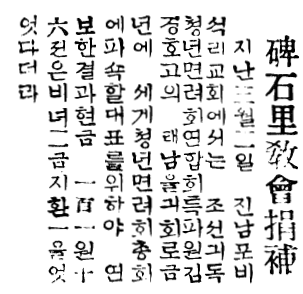 碑石里敎會捐補
지난三월二일 진남포비
석리교회에서는 조선긔독
청년면려회연합회특파원김
경호고의 태남을긔회로금
년에 세게청년면려회총회
에파속할대표를위하야 연
보한결과현금 一百一원十
六전은비녀二금지환一을엇
엇다더라